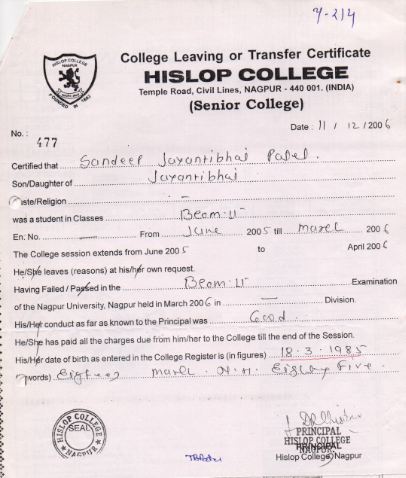 4-214
HISLOP COLLEGE
NAGPUR
FOUNDED IN 1883
College Leaving or Transfer Certificate
HISLOP COLLEGE
Temple Road, Civil Lines, NAGPUR - 440 001. (INDIA)
(Senior College)
No. : 477
Date : 11 / 12 / 2006
Certified that Sandeep Jayantibhai Patel.
Son/Daughter of Jayantibhai
Caste/Religion —
was a student in Classes Bcom-II
En. No. — From June 2005 till March 2006
The College session extends from June 2005 to April 2006
He/She leaves (reasons) at his/her own request.
Having Failed / Passed in the Bcom-II Examination
of the Nagpur University, Nagpur held in March 2006 in — Division.
His/Her conduct as far as known to the Principal was Good.
He/She has paid all the charges due from him/her to the College till the end of the Session.
His/Her date of birth as entered in the College Register is (in figures) 18.3.1985
(words) Eighteen March N.H. Eighty Five.
HISLOP COLLEGE
SEAL
NAGPUR
PRINCIPAL
HISLOP COLLEGE
NAGPUR.
PRINCIPAL
Hislop College, Nagpur